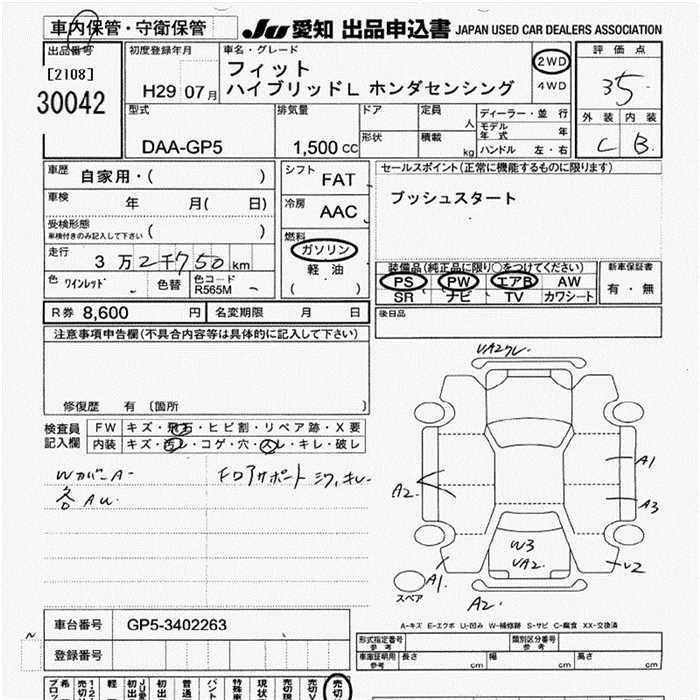 車内保管・守衛保管
JU 愛知 出品申込書 JAPAN USED CAR DEALERS ASSOCIATION
出品番号
[2108]
30042
初度登録年月
H29 07月
車名・グレード
フィット
ハイブリッドL ホンダセンシング
2WD
4WD
評価点
35
外装 内装
C B
型式
DAA-GP5
排気量
1,500 cc
ドア
形状
定員 人
積載 kg
ディーラー・並行
モデル年式 年
ハンドル 左・右
車歴
自家用・( )
車検 年 月( 日)
受検形態
車検付きのみ記入して下さい ( )
走行
3万2千750km
色 ワインレッド 色替 色コード R565M
シフト
FAT
冷房
AAC
燃料
ガソリン
軽油
( )
セールスポイント(正常に機能するものに限ります)
プッシュスタート
装備品(純正品に限り○をつけてください)
PS PW エアB AW
SR ナビ TV カワシート
新車保証書
有・無
後日品
R券 8,600 円 名変期限 月 日
注意事項申告欄(不具合内容等は具体的に記入して下さい)
修復歴 有 〔箇所 〕
検査員記入欄
FW キズ・飛石・ヒビ割・リペア跡・X要
内装 キズ・汚レ・コゲ・穴・スレ・キレ・破レ
WカバーA-
各AU
ドアサポート シワ,キレ
A1
A3
A2
W3
A1
U2
A2
スペア
A-キズ E-エクボ U-凹み W-補修跡 S-サビ C-腐食 XX-交換済
車台番号 GP5-3402263
登録番号
形式指定番号 参考
類別区分番号 参考
車庫証明用 参考
長さ cm 幅 cm 高さ cm